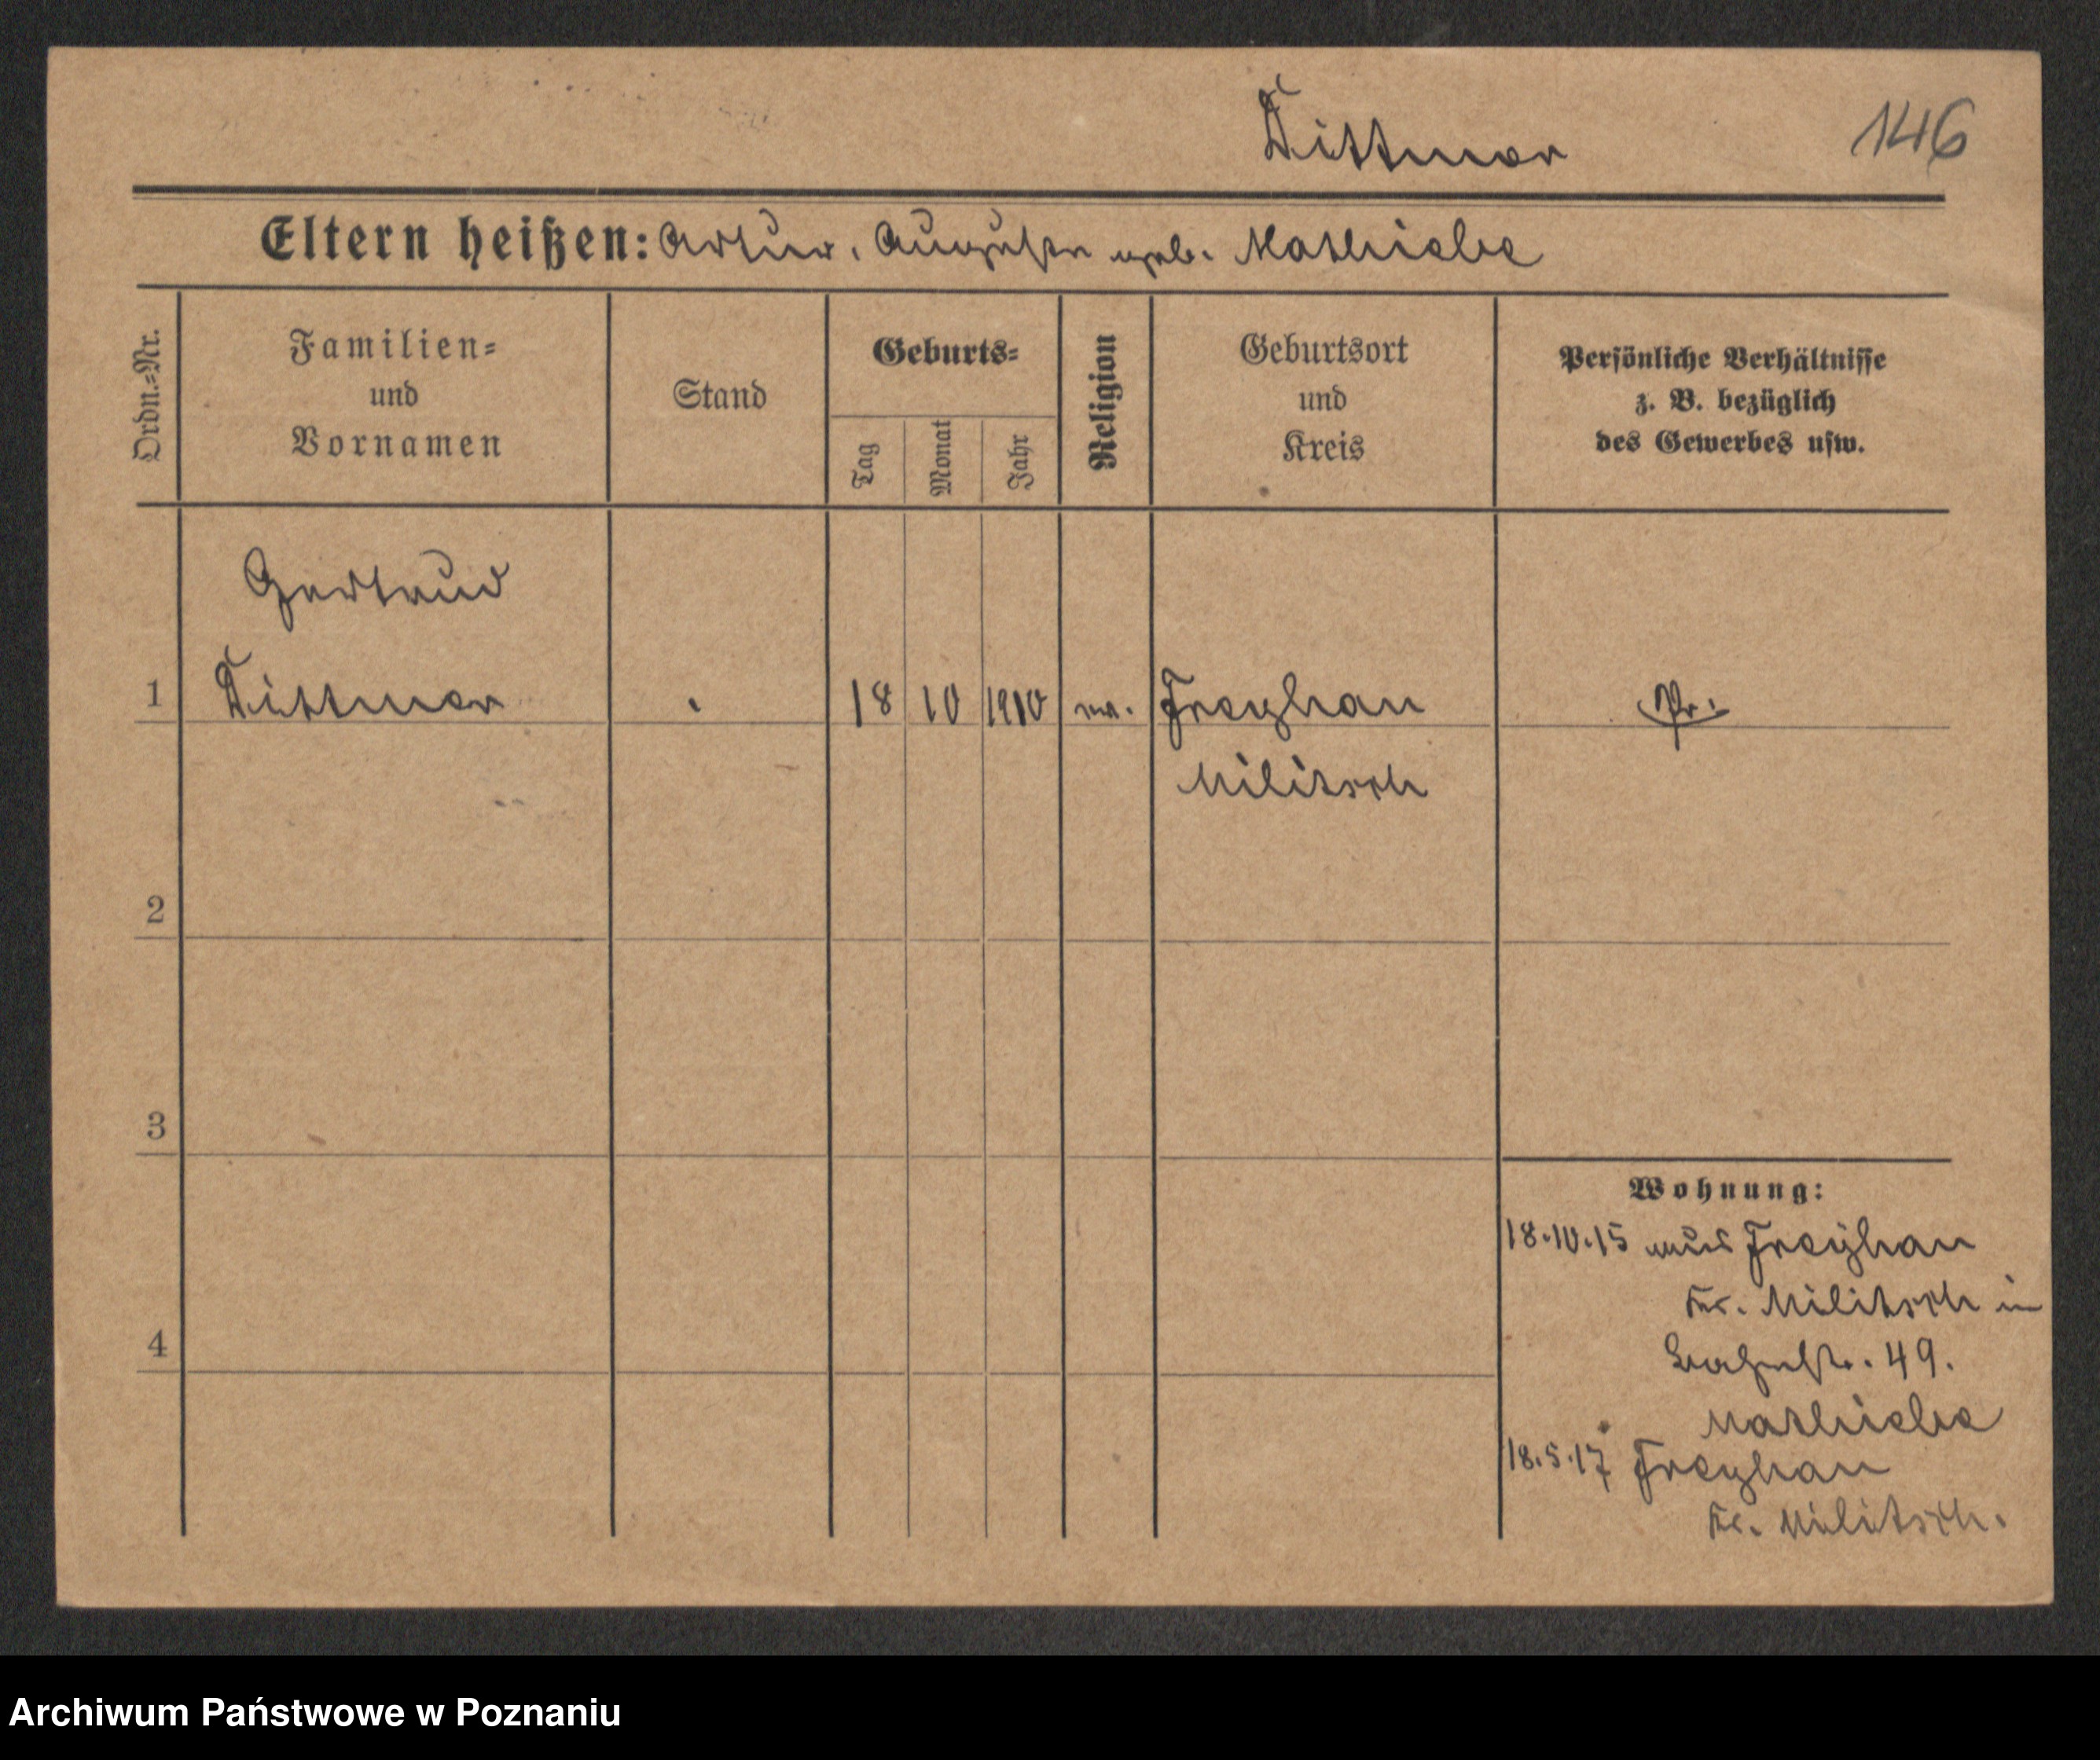 Dittmar
146
Eltern heißen: Artur, Auguste geb. Mathiebe
Ordn.=Nr.
Familien=
und
Vornamen
Stand
Geburts=
Tag
Monat
Jahr
Religion
Geburtsort
und
Kreis
Persönliche Verhältnisse
z. B. bezüglich
des Gewerbes usw.
Gertrud
1 Dittmar 18 10 1910 ev. Freyhan Pr.
Militsch
2
3
Wohnung:
18.10.15 aus Freyhan
Kr. Militsch in
49.
Mathiebe
18.5.17 Freyhan
Kr. Militsch.
4
Archiwum Państwowe w Poznaniu